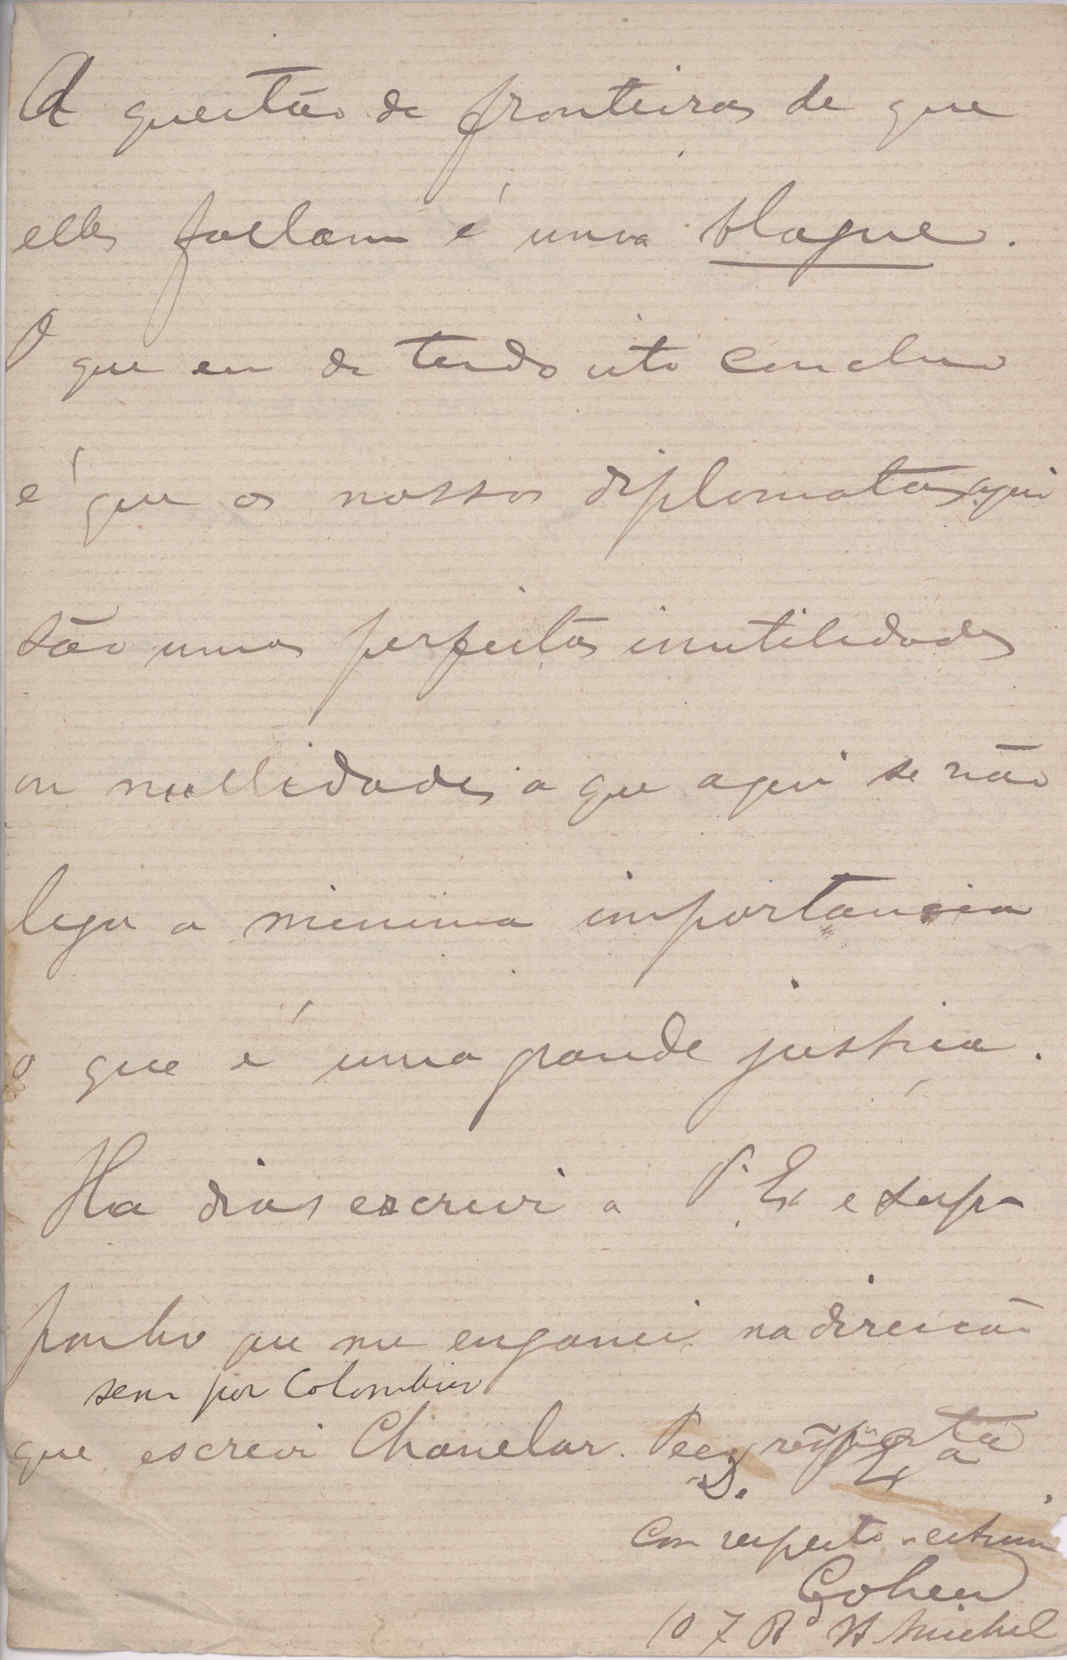 A questão de fronteiras de que
elles fallam é uma blague.
O que eu de tudo isto concluo
é que os nossos diplomatas aqui
são umas perfeitas inutilidades
ou nullidades a que aqui se não
liga a minima importancia
o que é uma grande justiça.
Ha dias escrevi a V. Ex e sup
ponho que me enganei na direcção
sem por Colombier
que escrevi Chanelar. Peço resposta
De V. Ex a
Com respeito e estima
Cohen
107 Bd St Michel